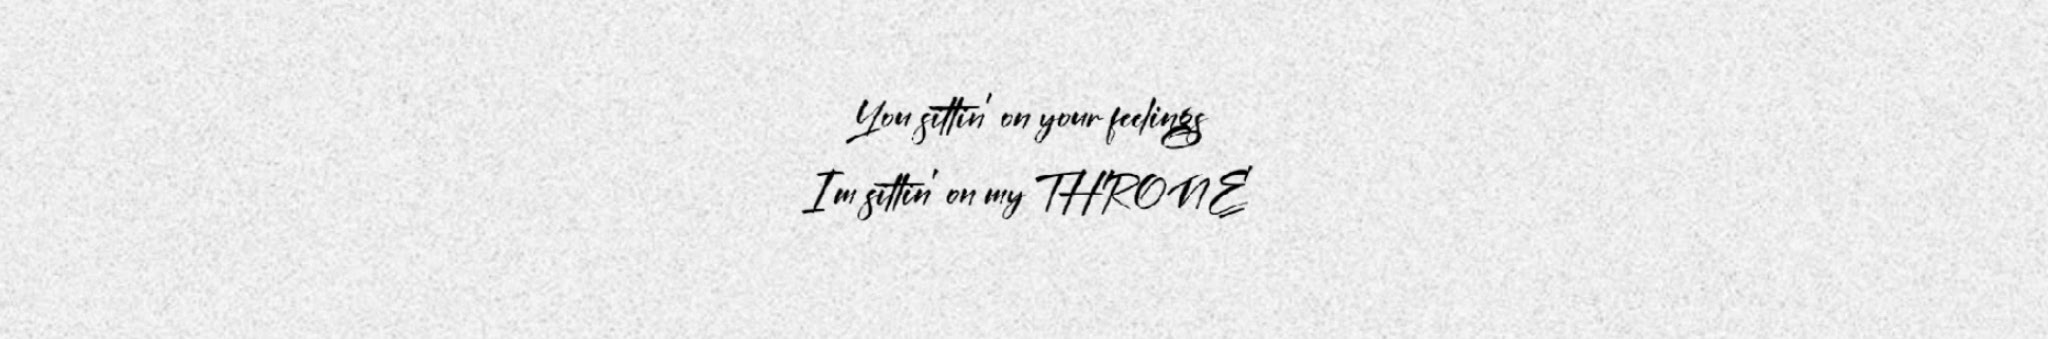 You sittin' on your feelings
I'm sittin' on my THRONE